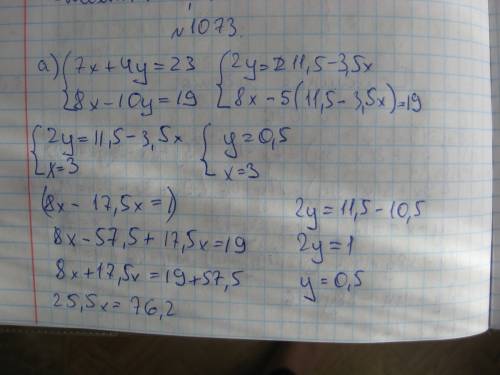 №1073.
а) {7x+4y=23 {2y=11,5-3,5x
{8x-10y=19 {8x-5(11,5-3,5x)=19
{2y=11,5-3,5x {y=0,5
{x=3 {x=3
(8x-17,5x=)
8x-57,5+17,5x=19
8x+17,5x=19+57,5
25,5x=76,2
2y=11,5-10,5
2y=1
y=0,5